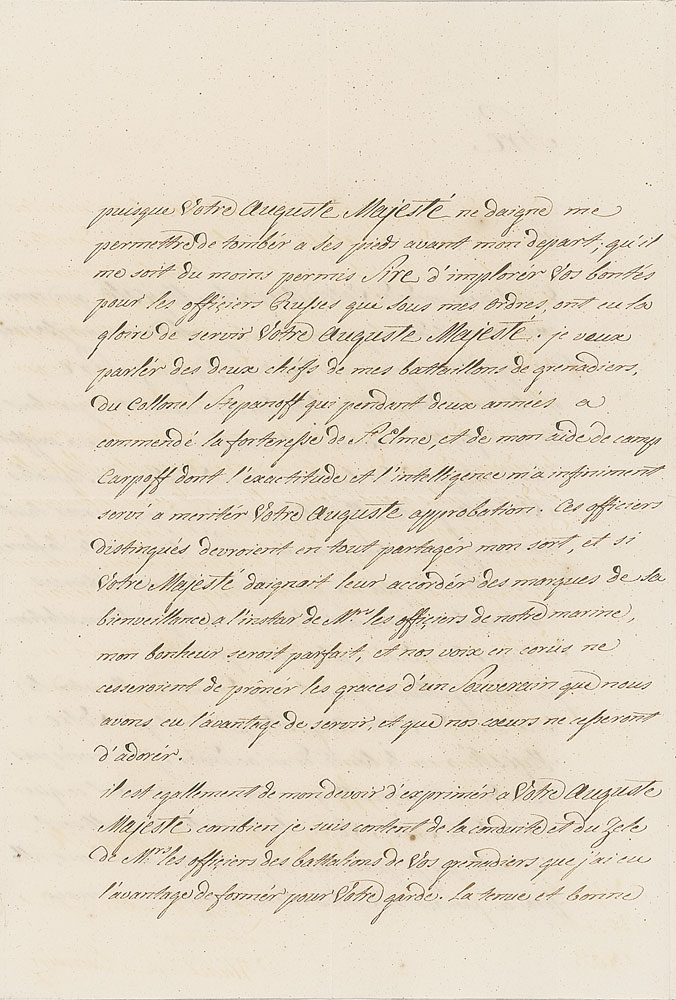 puisque Votre Auguste Majesté ne daigne me
permettre de tombér a ses pieds avant mon depart, qu'il
me soit du moins permis Sire d'implorér Vos bontés
pour les officiers Russes qui sous mes ordres, ont eu la
gloire de servir Votre Auguste Majesté. je veux
parlér des deux chéfs de mes battaillons de grenadiers,
du Collonel Stepanoff qui pendant deux années a
commendé la forteresse de St Elme, et de mon aide de camp
Carpoff dont l'exactitude et l'intelligence m'a infiniment
servi a meritér Votre Auguste approbation. Ces officiers
distingués devroient en tout partagér mon sort, et si
Votre Majesté daignait leur accordér des marques de sa
bienveillance a l'instar de Mrs les officiers de notre marine,
mon bonheur seroit parfait, et nos voix en corüs ne
cesseroient de prônér les graces d'un Souverain que nous
avons eu l'avantage de servir, et que nos cœurs ne cesseront
d'adorér.
il est egallement de mon devoir d'exprimér a Votre Auguste
Majesté combien je suis content de la conduite et du Zele
de Mrs les officiers des battalions de Vos grenadiers que j'ai eu
l'avantage de formér pour Votre garde. La tenue et bonne